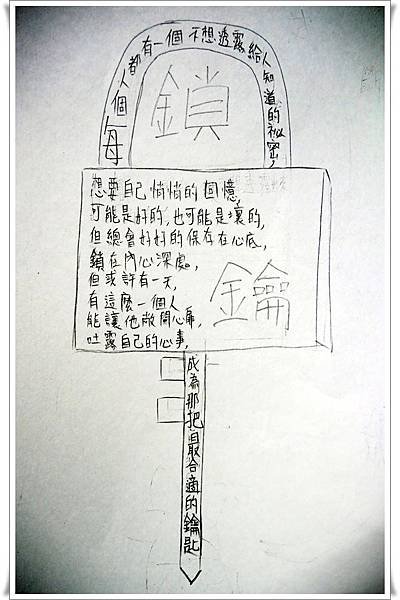 每個人都有一個不想透露給人知道的祕密,
鎖
想要自己悄悄的回憶,
可能是好的,也可能是壞的,
但總會好好的保存在心底,
鎖在內心深處,
但或許有一天,
有這麼一個人
能讓他敞開心扉,
吐露自己的心事,
鑰
成為那把最合適的鑰匙